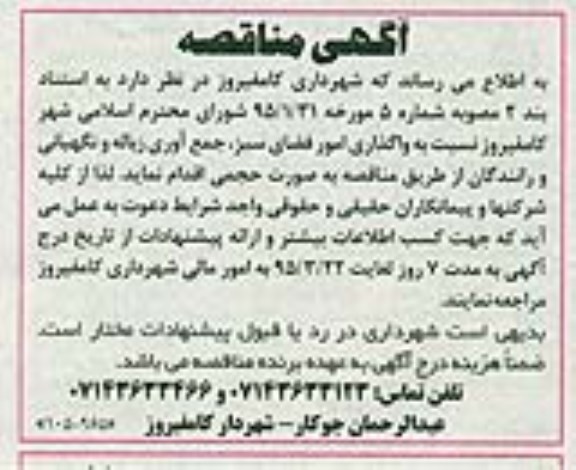 آگهی مناقصه
به اطلاع می رساند که شهرداری کامفیروز در نظر دارد به استناد
بند ۲ مصوبه شماره ۵ مورخه ۹۵/۱/۳۱ شورای محترم اسلامی شهر
کامفیروز نسبت به واگذاری امور فضای سبز، جمع آوری زباله و نگهبانی
و رانندگان از طریق مناقصه به صورت حجمی اقدام نماید. لذا از کلیه
شرکتها و پیمانکاران حقیقی و حقوقی واجد شرایط دعوت به عمل می
آید که جهت کسب اطلاعات بیشتر و ارائه پیشنهادات از تاریخ درج
آگهی به مدت ۷ روز لغایت ۹۵/۳/۲۲ به امور مالی شهرداری کامفیروز
مراجعه نمایند.
بدیهی است شهرداری در رد یا قبول پیشنهادات مختار است.
ضمناً هزینه درج آگهی به عهده برنده مناقصه می باشد.
تلفن تماس: ۰۷۱۴۳۶۳۳۱۲۳ و ۰۷۱۴۳۶۳۳۴۶۶
عبدالرحمان جوکار – شهردار کامفیروز